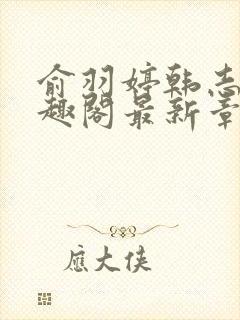 俞羽婷韩志
趣阁最新章
應大侠